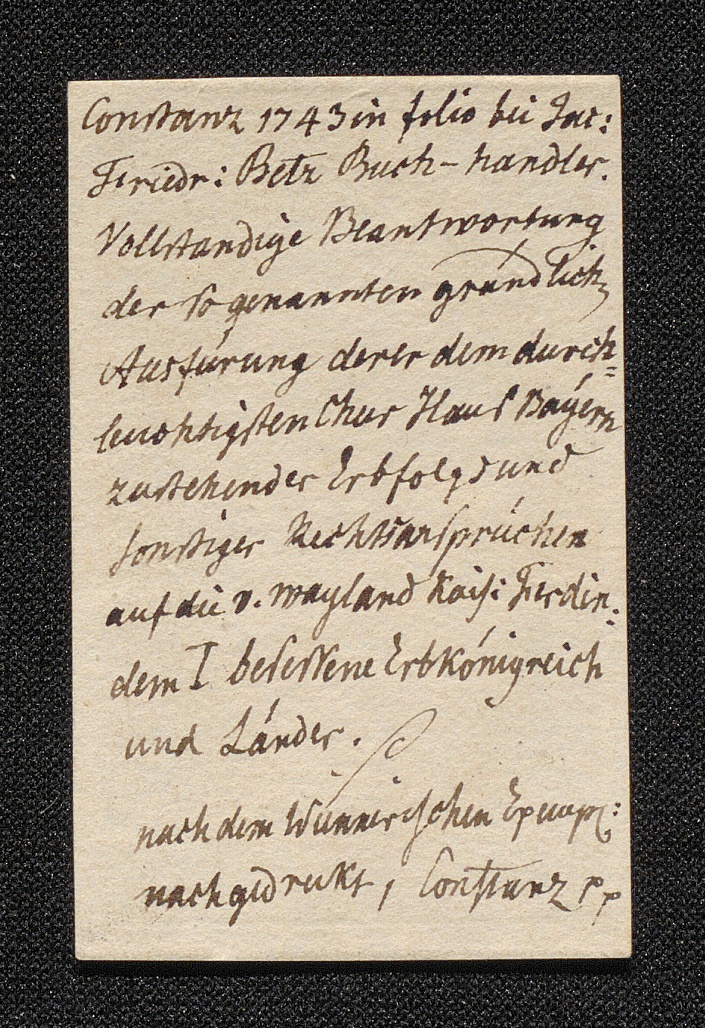 Constanz 1743 in folio bei Jac:
Friedr: Betz Buch-handler.
Vollstandige Beantwortung
der so genannten gründlich
Ausfürung derer dem durch=
leuchtigsten Chur Haus Bayern
zustehender Erbfolgs und
sonstiger Rechtsansprüchen
auf die v. wayland Kais: Ferdin:
dem I besessene Erbkönigreich
und Länder.
nach dem Wienner schen
nachgedrukt, Constanz pp